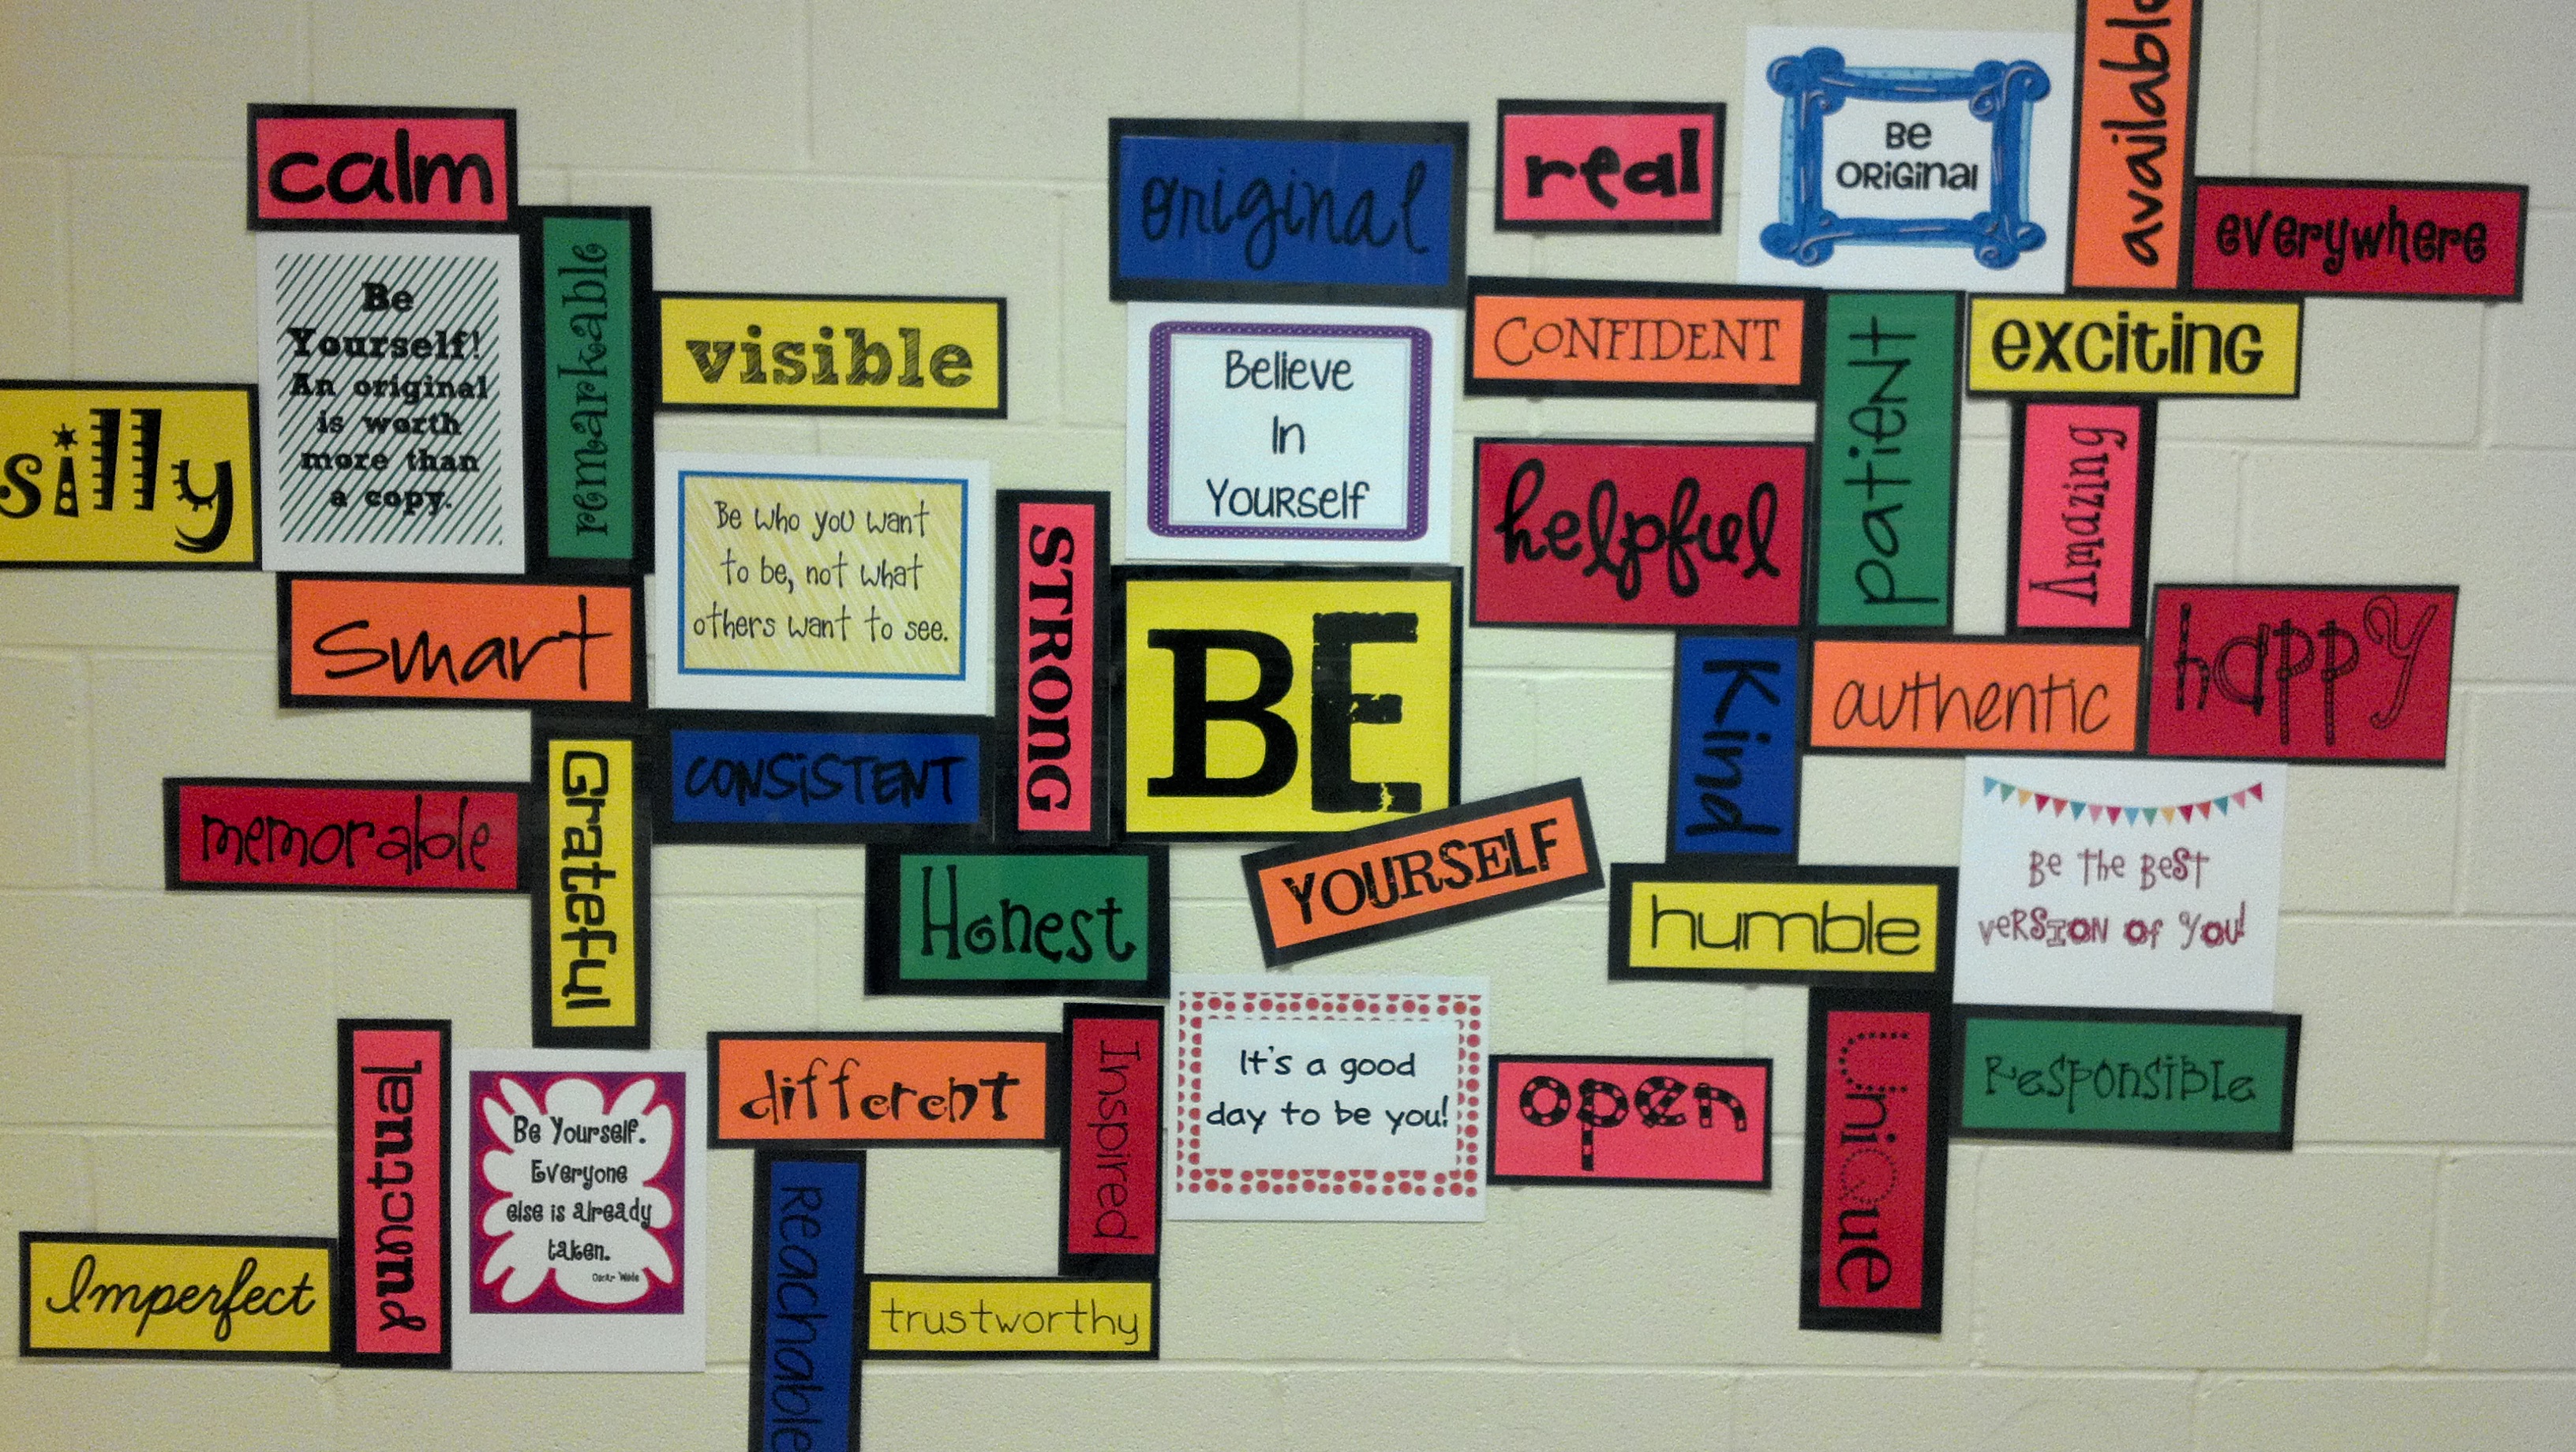 calm
Be
Yourself!
An original
is worth
more than
a copy.
remarkable
visible
silly
smart
Be who you want
to be, not what
others want to see.
STRONG
CONSiSTENT
memorable
Grateful
Honest
original
real
BE
ORiGinal
available
everywhere
Believe
In
Yourself
CONFIDENT
patient
exciting
Amazing
helpful
BE
YOURSELF
Kind
authentic
happy
humble
Be the Best
version of you!
punctual
Imperfect
Be Yourself.
Everyone
else is already
taken.
Oscar Wilde
different
Inspired
Reachable
trustworthy
It's a good
day to be you!
open
Unique
Responsible